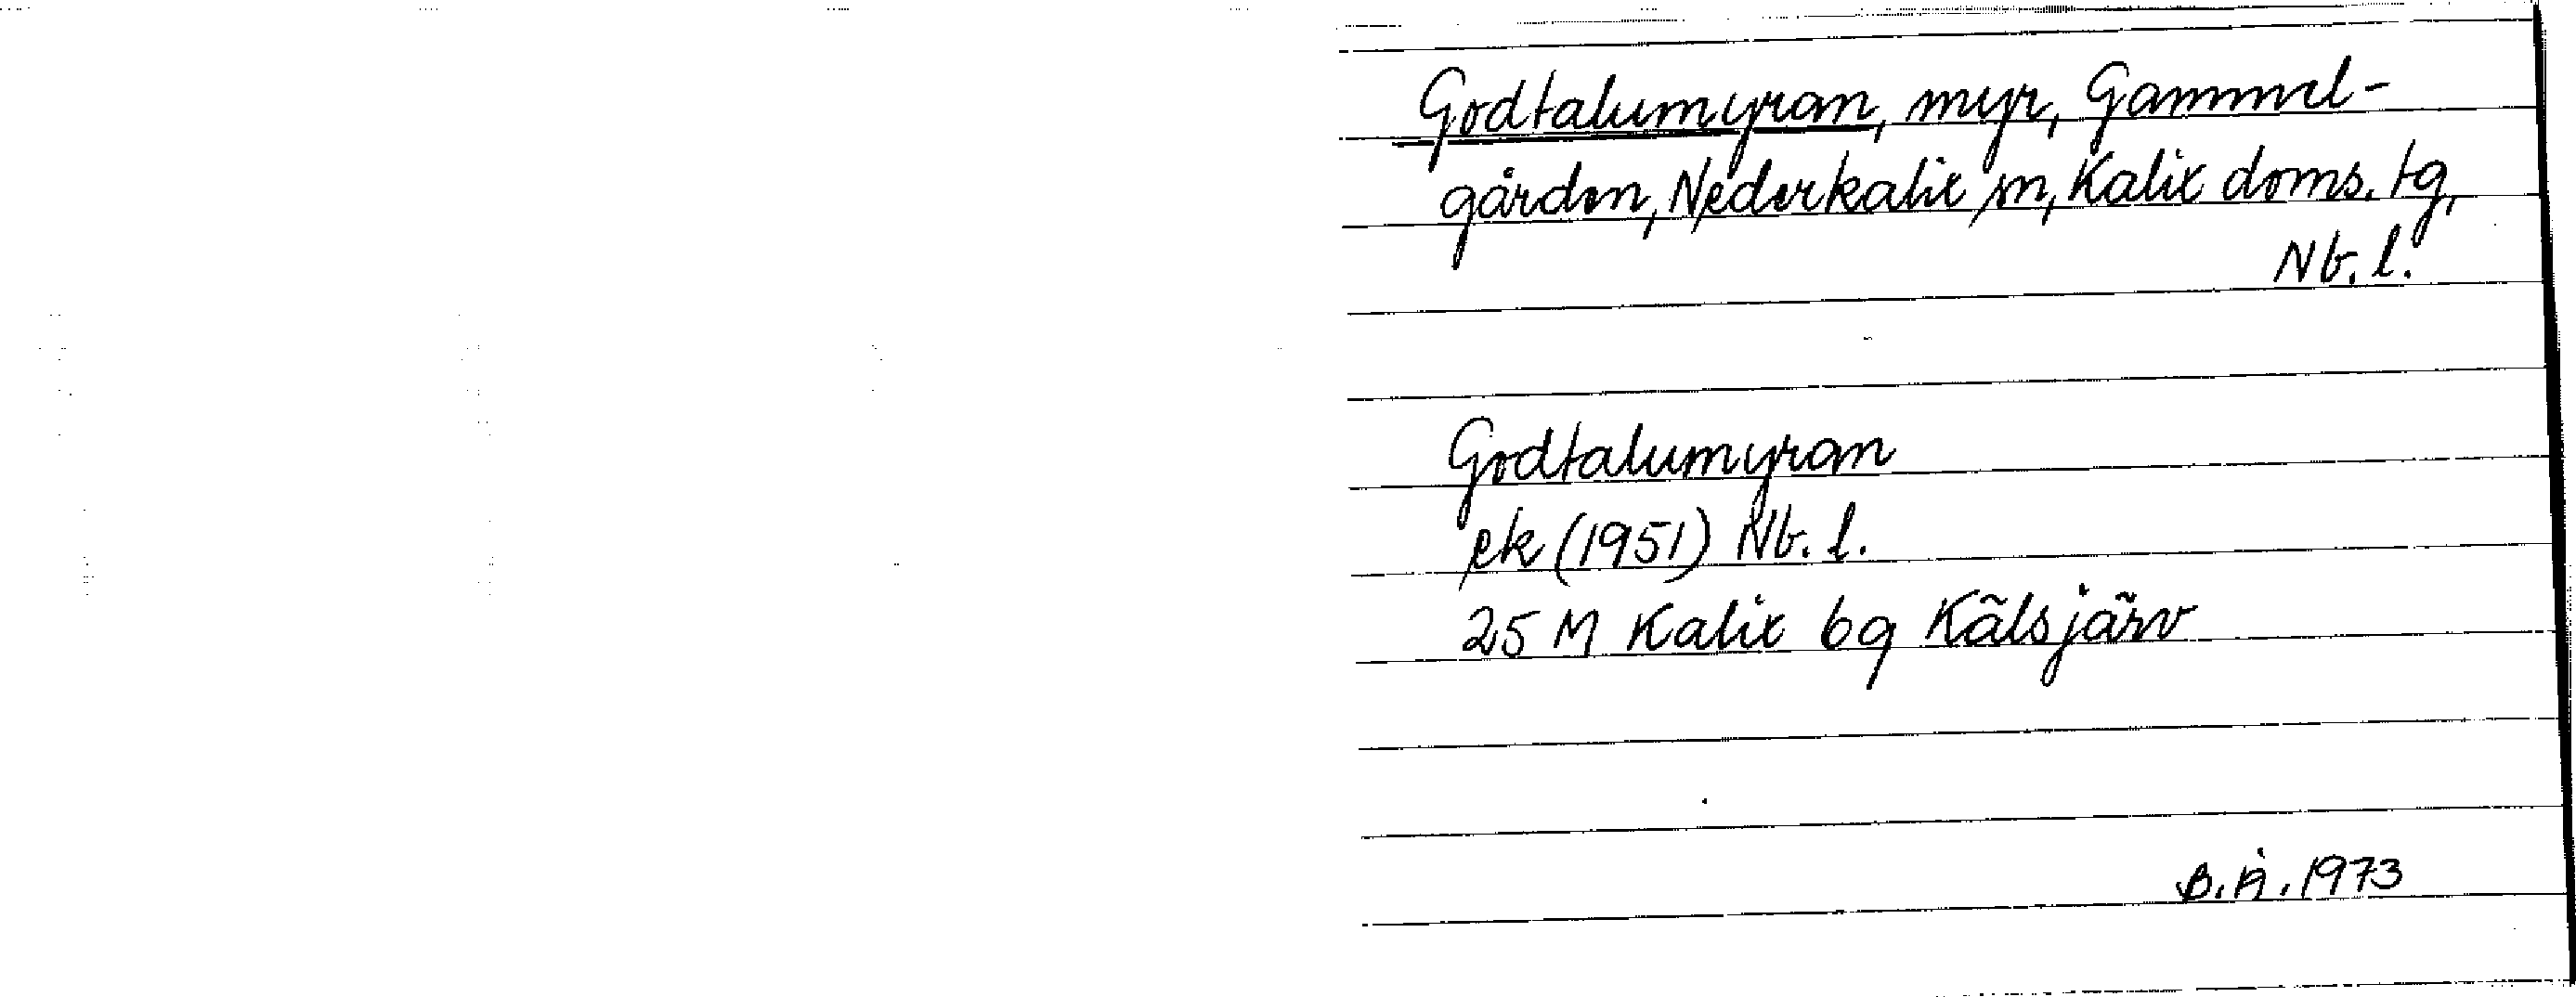 Godtalumyran, myr, Gammel-
gården, Nederkalix sn, Kalix doms. tg,
Nb. l.
Godtalumyran
ek (1951) Nb. l.
25 M Kalix 6q Kälsjärv
B.Å. 1973